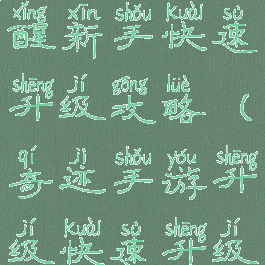 xǐng xīn shǒu kuài sù
醒新手快速
shēng jí gōng lüè
升级攻略(
qí jì shǒu yóu shēng
奇迹手游升
jí kuài sù shēng jí
级快速升级